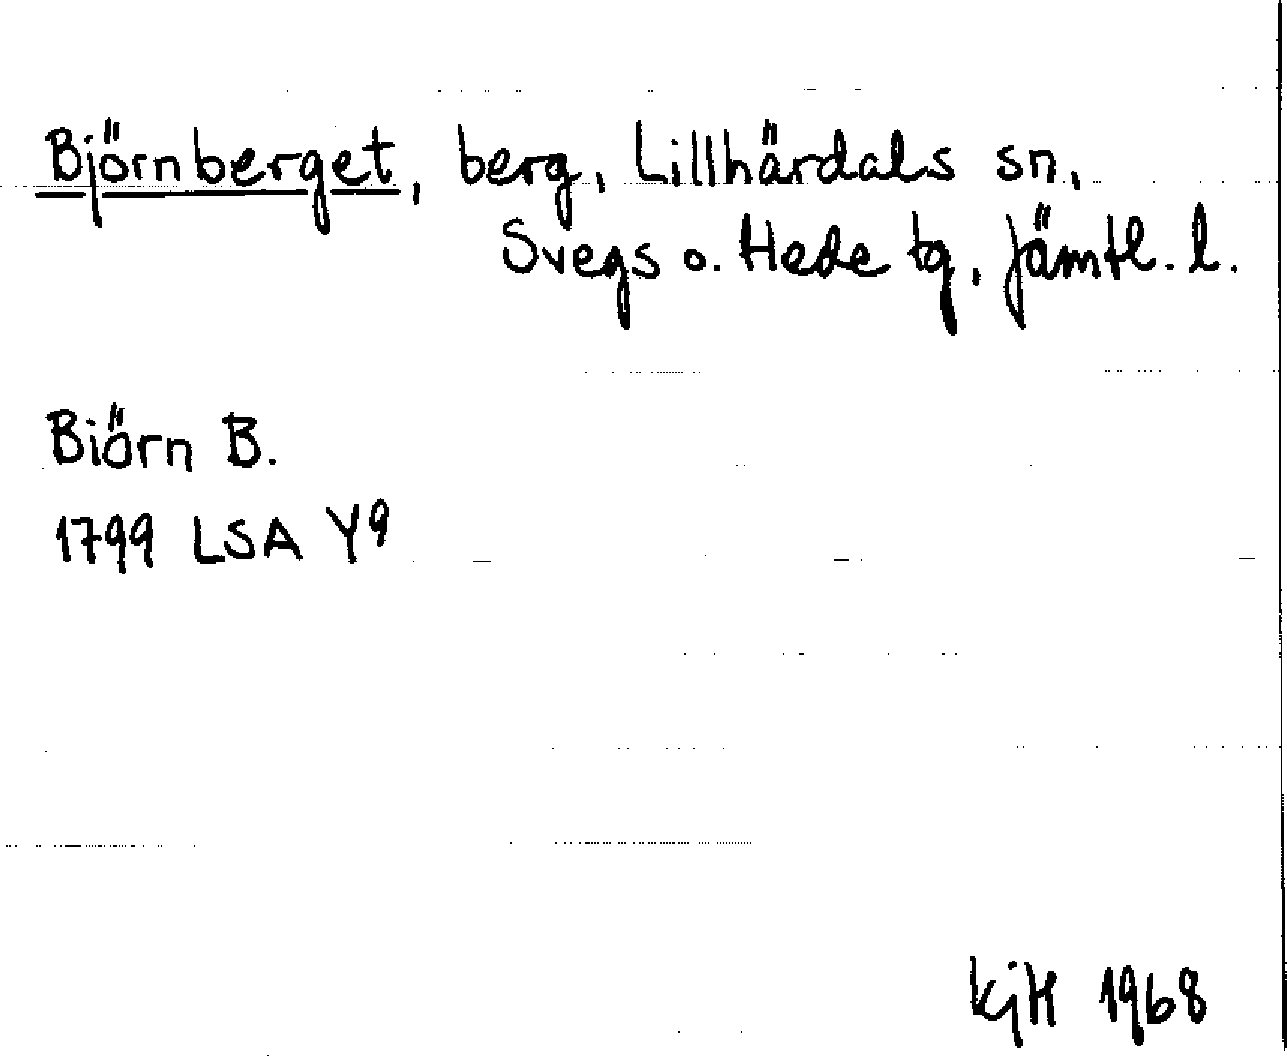 Björnberget, berg, Lillhärdals sn,
Svegs o. Hede tg, Jämtl. l.
Biörn B.
1799 LSA Y9
KjH 1968